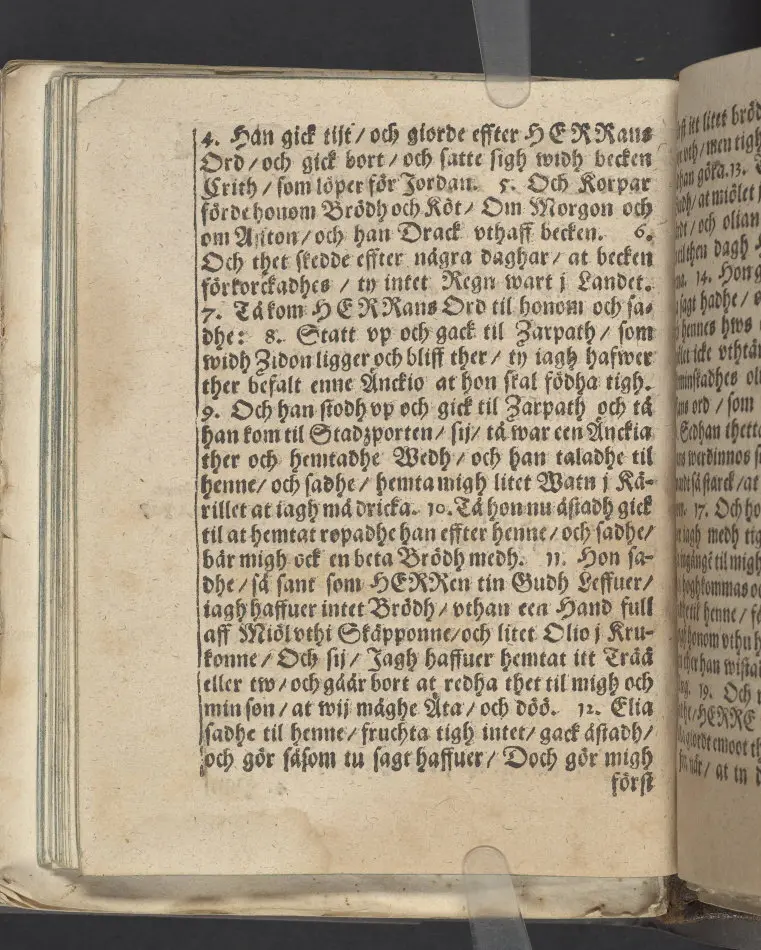 4. Han gick tijt / och giorde effter HERRans
Ord / och gick bort / och satte sigh widh becken
Crith / som löper för Jordan. 5. Och Korpar
förde honom Brödh och Köt / Om Morgon och
om Affton / och han Drack vthaff becken. 6.
Och thet skedde effter några daghar / at becken
förtorckadhes / ty intet Regn wart j Landet.
7. Tå kom HERRans Ord til honom och sa-
dhe: 8. Statt vp och gack til Zarpath / som
widh Zidon ligger och bliff ther / ty iagh hafwer
ther befalt enne Änckio at hon skal födha tigh.
9. Och han stodh vp och gick til Zarpath och tå
han kom til Stadzporten / sij / tå war een Änckia
ther och hemtadhe Wedh / och han taladhe til
henne / och sadhe / hemta migh litet Watn j Kä-
rillet at iagh må dricka. 10. Tå hon nu åstadh gick
til at hemtat ropadhe han effter henne / och sadhe /
bär migh ock en beta Brödh medh. 11. Hon sa-
dhe / så sant som HERRen tin Gudh Leffuer /
iagh haffuer intet Brödh / vthan een Hand full
aff Miöl vthi Skäpponne / och litet Olio j Kru-
konne / Och sij / Jagh haffuer hemtat itt Trää
eller tw / och gåår bort at redha thet til migh och
min son / at wij mäghe Äta / och döö. 12. Elia
sadhe til henne / fruchta tigh intet / gack åstadh /
och gör såsom tu sagt haffuer / Doch gör migh
först